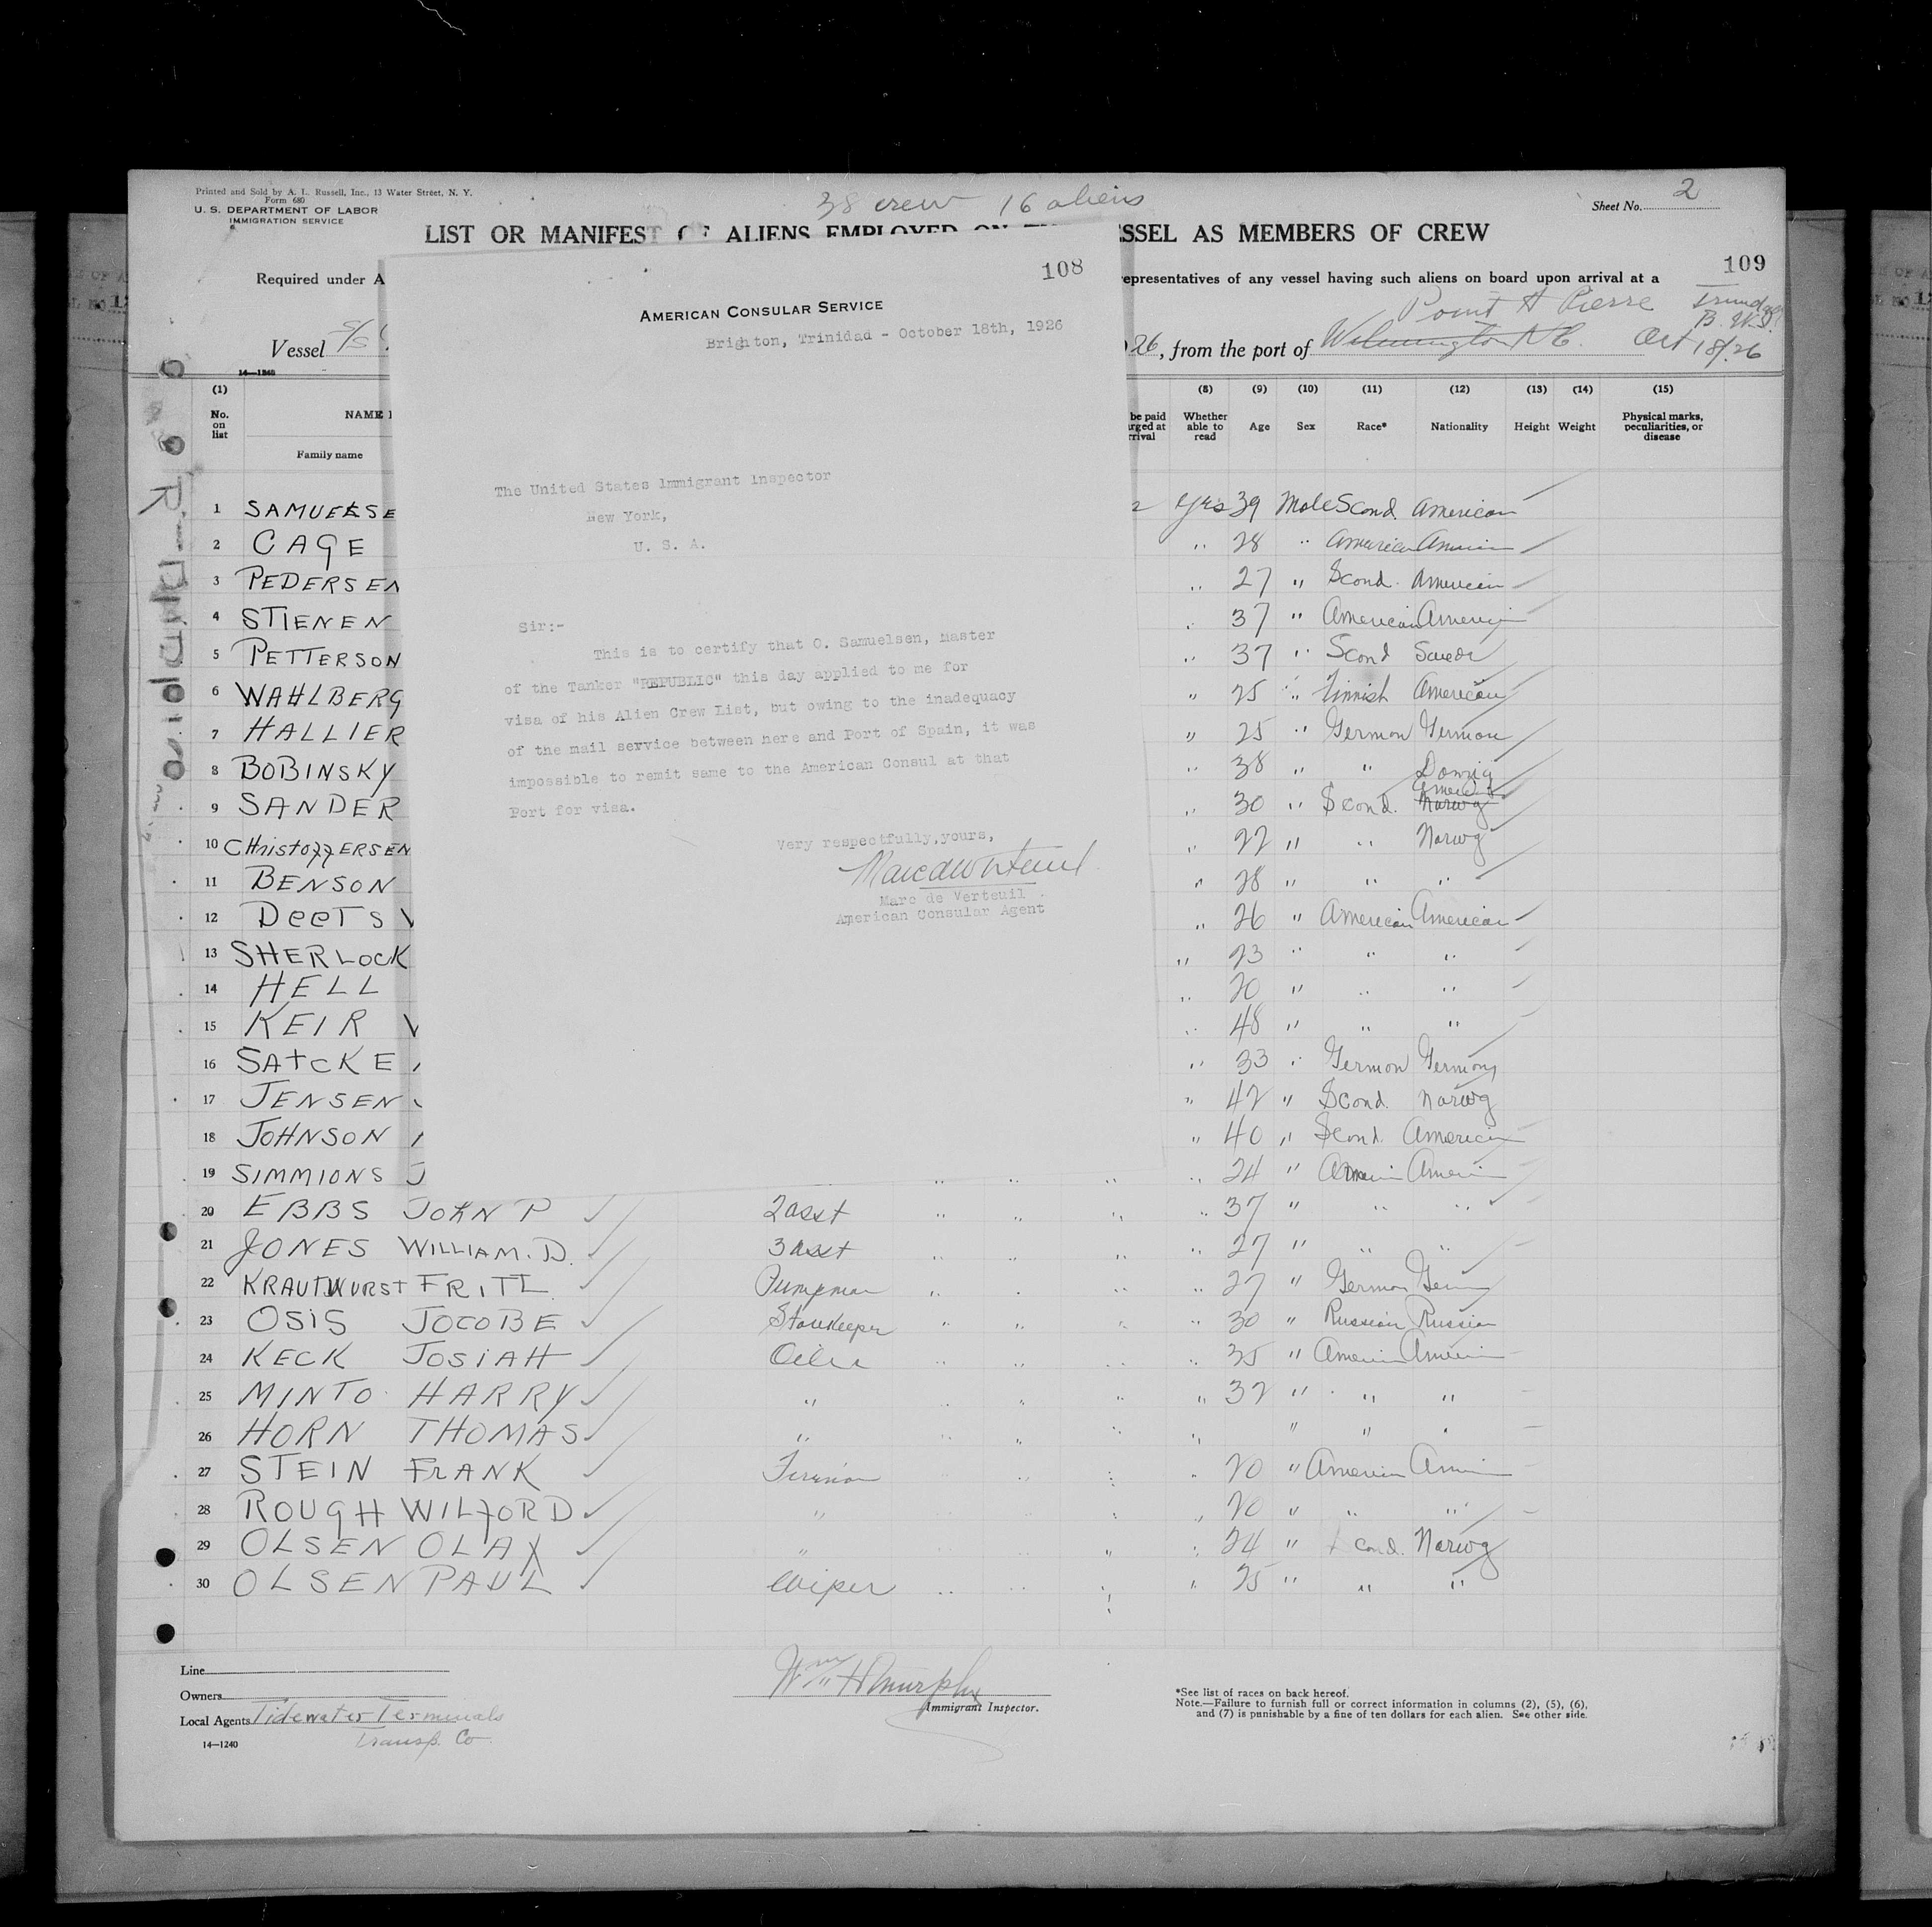 Printed and Sold by A. L. Russell, Inc., 13 Water Street, N. Y.
Form 680
U. S. DEPARTMENT OF LABOR
IMMIGRATION SERVICE
38 crew 16 aliens
Sheet No. 2
LIST OR MANIFEST OF ALIENS EMPLOYED ON SSEL AS MEMBERS OF CREW
109
Required under A
epresentatives of any vessel having such aliens on board upon arrival at a
Point A Pierre Trinidad
B. W. I.
Vessel S/S
26, from the port of Wilmington N.C. Oct 18/26
14—1240
108
AMERICAN CONSULAR SERVICE
Brighton, Trinidad - October 18th, 1926
The United States Immigrant Inspector
New York,
U. S. A.
Sir:-
This is to certify that O. Samuelsen, Master
of the Tanker "REPUBLIC" this day applied to me for
visa of his Alien Crew List, but owing to the inadequacy
of the mail service between here and Port of Spain, it was
impossible to remit same to the American Consul at that
Port for visa.
Very respectfully,yours,
Marc de Verteuil
American Consular Agent
(1) (8) (9) (10) (11) (12) (13) (14) (15)
No. on list
NAME
Family name
be paid
rged at
rrival
Whether able to read
Age
Sex
Race*
Nationality
Height
Weight
Physical marks, peculiarities, or disease
1 SAMUELSE yes 39 Male Scand. American
2 CAGE " 28 " American American
3 PEDERSEN " 27 " Scand. American
4 STIENEN " 37 " American American
5 PETTERSON " 37 " Scand Swede
6 WAHLBERG " 25 " Finnish American
7 HALLIER " 25 " German German
8 BOBINSKY " 38 " " Danzig
9 SANDER " 30 " Scand. Norwg
10 CHristoffERSEN " 22 " " Norwg
11 BENSON " 28 " " "
12 DeeTS " 26 " American American
13 SHERLOCK " 23 " " "
14 HELL " 20 " " "
15 KEIR " 48 " " "
16 SATCKE " 33 " German Germany
17 JENSEN " 42 " Scand. Norwg
18 JOHNSON " 40 " Scand. American
19 SIMMIONS J " " " " 24 " Ameri Ameri
20 EBBS JOHN P 2 asst " " " " 37 " " "
21 JONES WILLIAM. D. 3 asst " " " " 27 " " "
22 KRAUTWURST FRITZ Pumpman " " " " 27 " German Ger
23 OSIS JOCOBE Storekeeper " " " " 30 " Russian Russian
24 KECK JOSIAH Oiler " " " " 35 " Ameri Ameri
25 MINTO HARRY " " " " " 32 " " "
26 HORN THOMAS " " " " " " " "
27 STEIN FRANK Fireman " " " " 20 " American Ameri
28 ROUGH WILFORD " " " " " 20 " " "
29 OLSEN OLAF " " " " " 24 " Scand. Norwg
30 OLSEN PAUL Wiper " " " " 25 " " "
Line
Owners
Local Agents Tidewater Terminals
Transp. Co
14—1240
Wm H Murphy
Immigrant Inspector.
*See list of races on back hereof.
Note.—Failure to furnish full or correct information in columns (2), (5), (6),
and (7) is punishable by a fine of ten dollars for each alien. See other side.